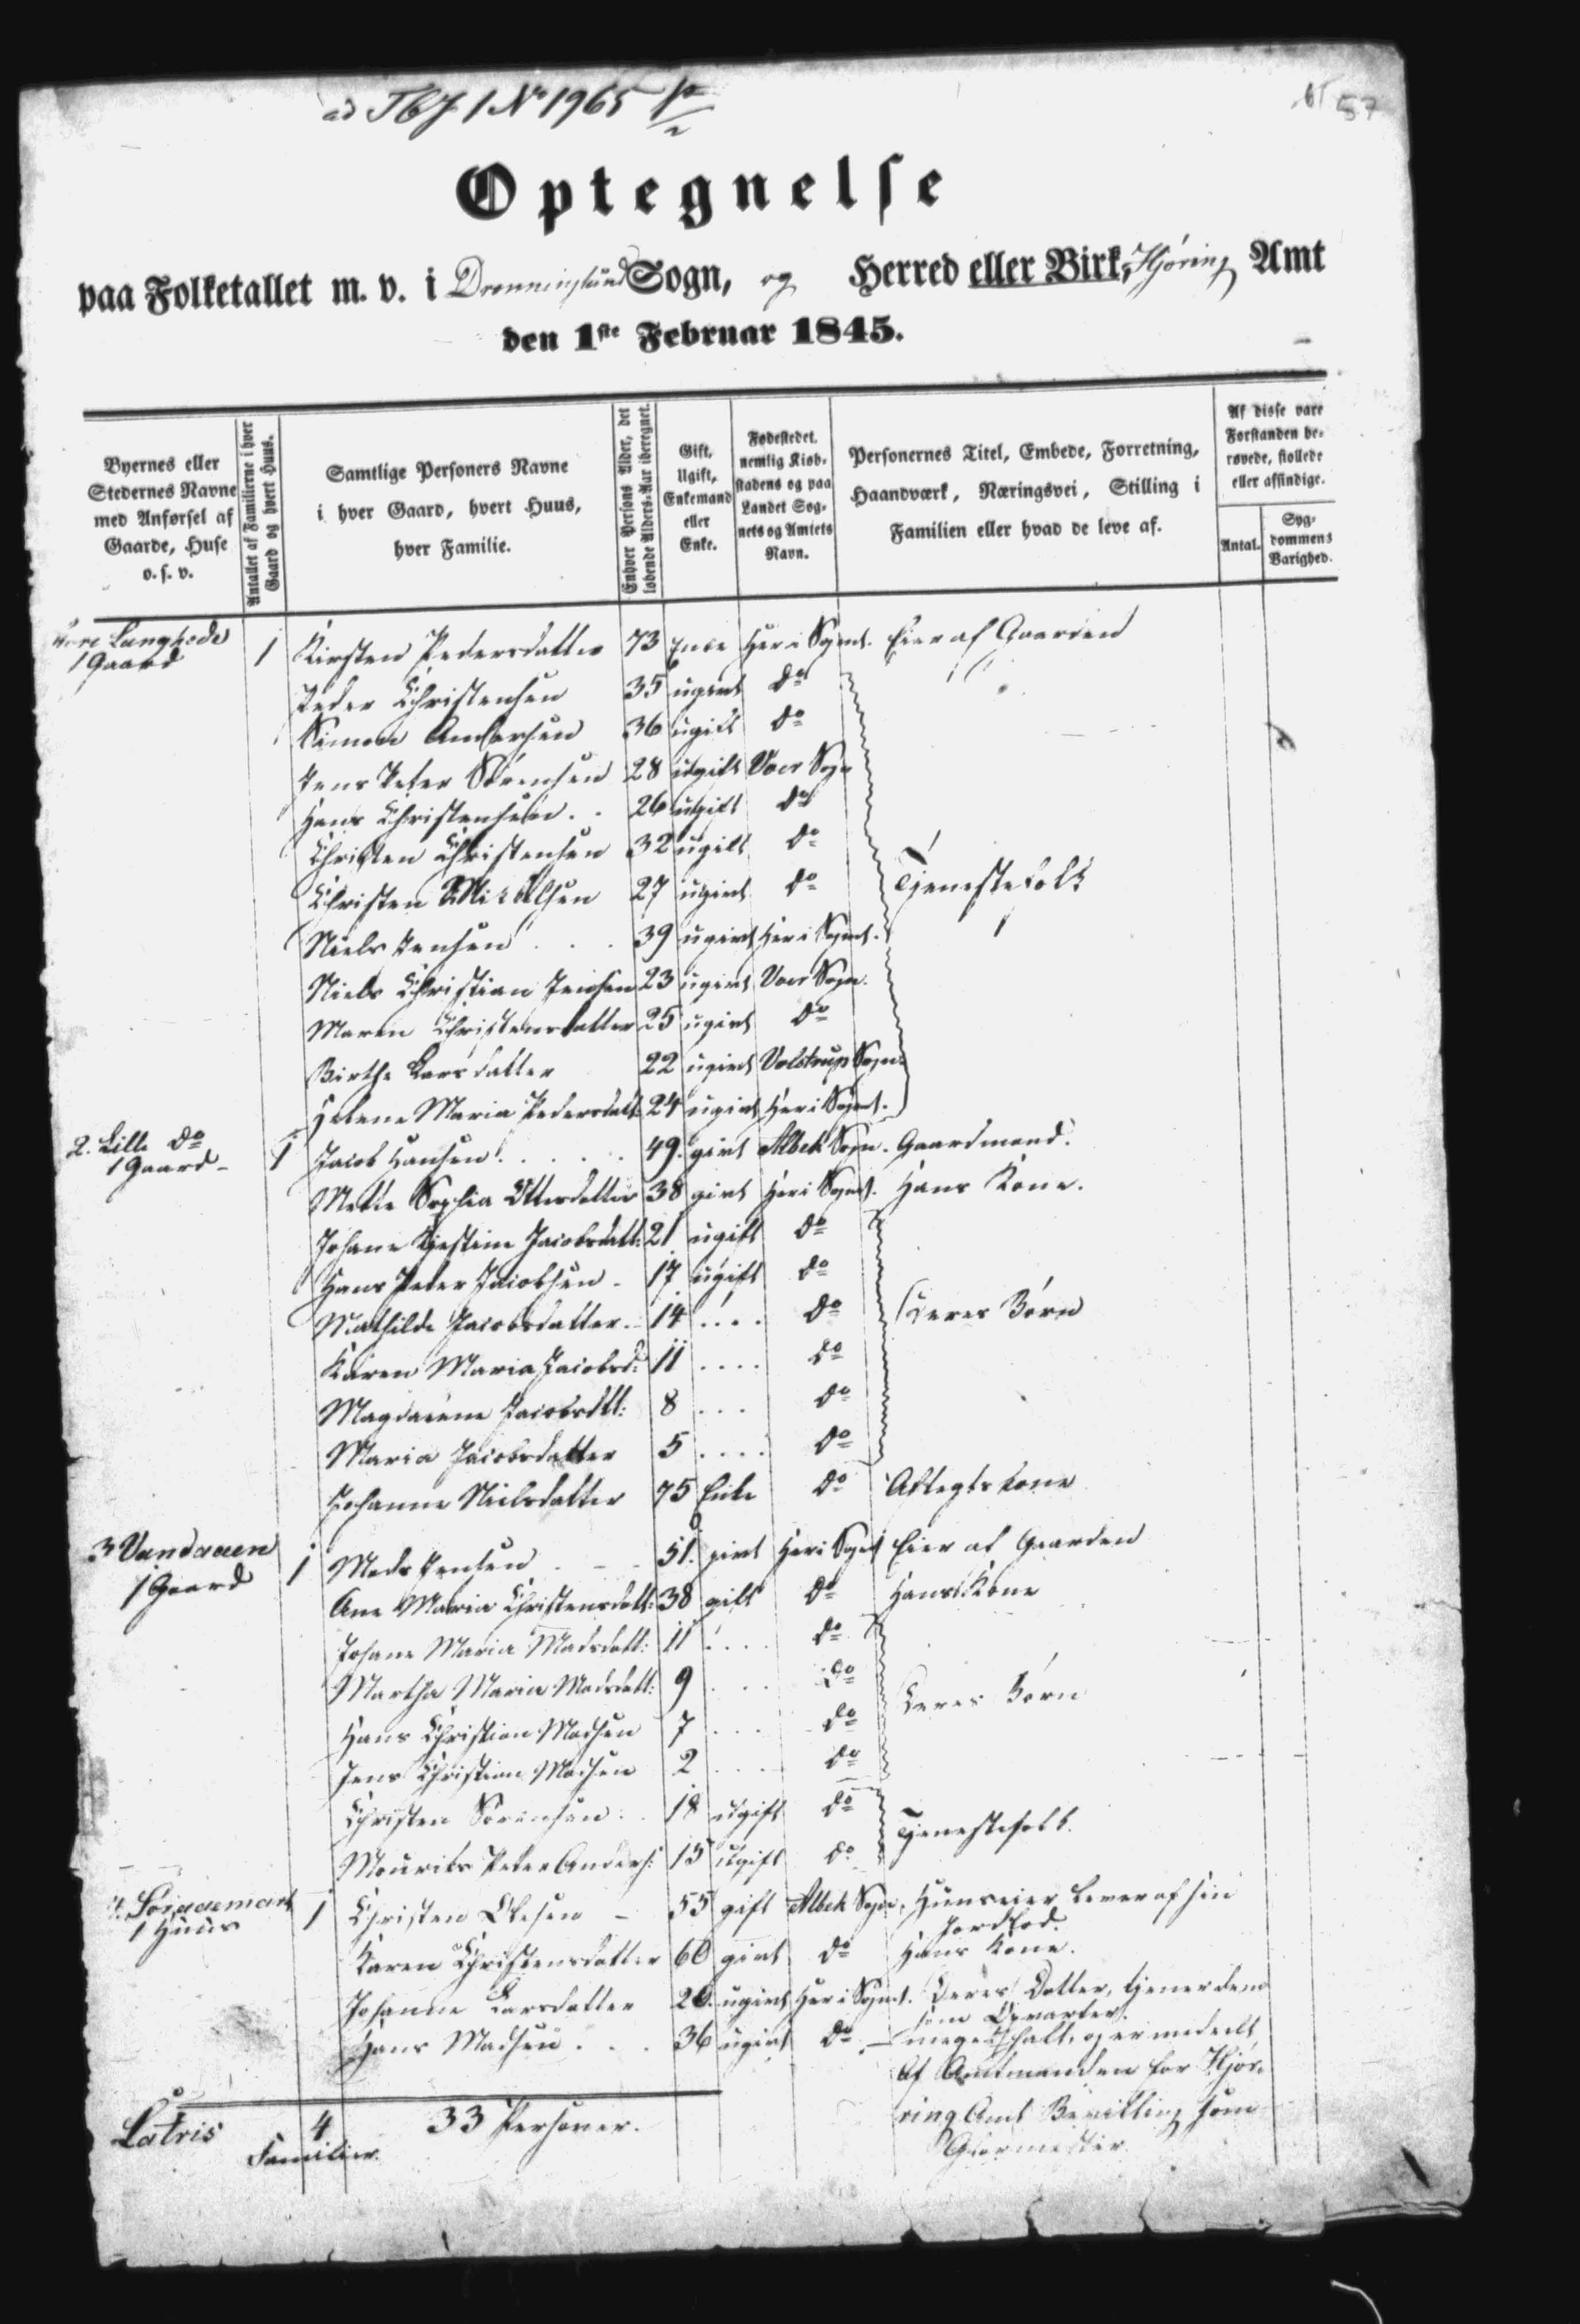 ad T&J 1 No 1965 1/2
57
Optegnelse
paa Folketallet m. v. i Dronninglund Sogn, og Herred eller Birk, Hjøring Amt
den 1ste Februar 1845.
Byernes eller Stedernes Navne med Anførsel af Gaarde, Huse o. s. v.
Antallet af Familierne i hver Gaard og hvert Huus.
Samtlige Personers Navne i hver Gaard, hvert Huus, hver Familie.
Enhver Persons Alder, det løbende Alders-Aar iberegnet.
Gift, Ugift, Enkemand eller Enke.
Fødestedet, nemlig Kiøbstadens og paa Landet Sognets og Amtets Navn.
Personernes Titel, Embede, Forretning, Haandværk, Næringsvei, Stilling i Familien eller hvad de leve af.
Af disse vare Forstanden berøvede, stollede eller afsindige.
Antal.
Sygdommens Varighed.
Store Langhede 1 Kirsten Pedersdatter 73 Enke Her i Sognet. Eier af Gaarden
1 Gaard
Peder Christensen 35 ugivt do
Simon Andersen 36 ugift do
Jens Peter Sörensen 28 ugift Voer Sogn
Hans Christensen . . 26 ugift do
Christen Christensen 32 ugift do
Christen Mikkelsen 27 ugivt do Tjenestefolk
Niels Jensen . . . 39 ugivt Her i Sognet.
Niels Christian Jensen 23 ugivt Voer Sogn.
Maren Christensdatter 25 ugivt do
Birthe Larsdatter 22 ugivt Volstrup Sogn.
Helene Maria Pedersdatt: 24 ugivt Her i Sognet.
2. Lille do 1 Jacob Hansen . . . . . 49. givt Albek Sogn. Gaardmand.
1 Gaard -
Mette Sophia Ottesdatter 38 givt Her i Sognet. Hans Kone.
Johane Kjestine Jacobsdatt: 21 ugift do
Hans Peter Jacobsen - 17 ugift do
Mathilde Jacobsdatter - 14 . . . . do Deres Börn
Karen Maria Jacobsd: 11 . . . . do
Magdalene Jacobsdtt: 8 . . . do
Maria Jacobsdatter 5 . . . . do
Johanne Nielsdatter 75 Enke do Aftegtskone
3 Vandaaen 1 Mads Jensen - - 51. givt Her i Sognet Eier af Gaarden
1 Gaard
Ane Maria Christensdatt: 38 gift do Hans Kone
Johane Maria Madsdatt: 11 . . . . do
Martha Maria Madsdatt: 9 . . . do Deres Börn
Hans Christian Madsen 7 . . . do
Jens Christian Madsen 2 . . . . do
Christen Sörensen . . 18 ugift do Tjenestefolk.
Mourits Peter Anders: 15 ugift do
1 Huus 1 Christen Olesen - 55 gift Albek Sogn, Huuseier lever af sin
Jordlod.
Karen Christensdatter 60 givt do Hans Kone.
Johanne Larsdatter 26. ugivt Her i Sognet. Deres Datter, tjener dem
som
Hans Madsen . . . 36 ugivt do - meget halt, og er meddelt
Af Amtmanden for Hjör-
ring Amt Bevilling som
Glarmester.
Latris 4 33 Personer.
Familier.